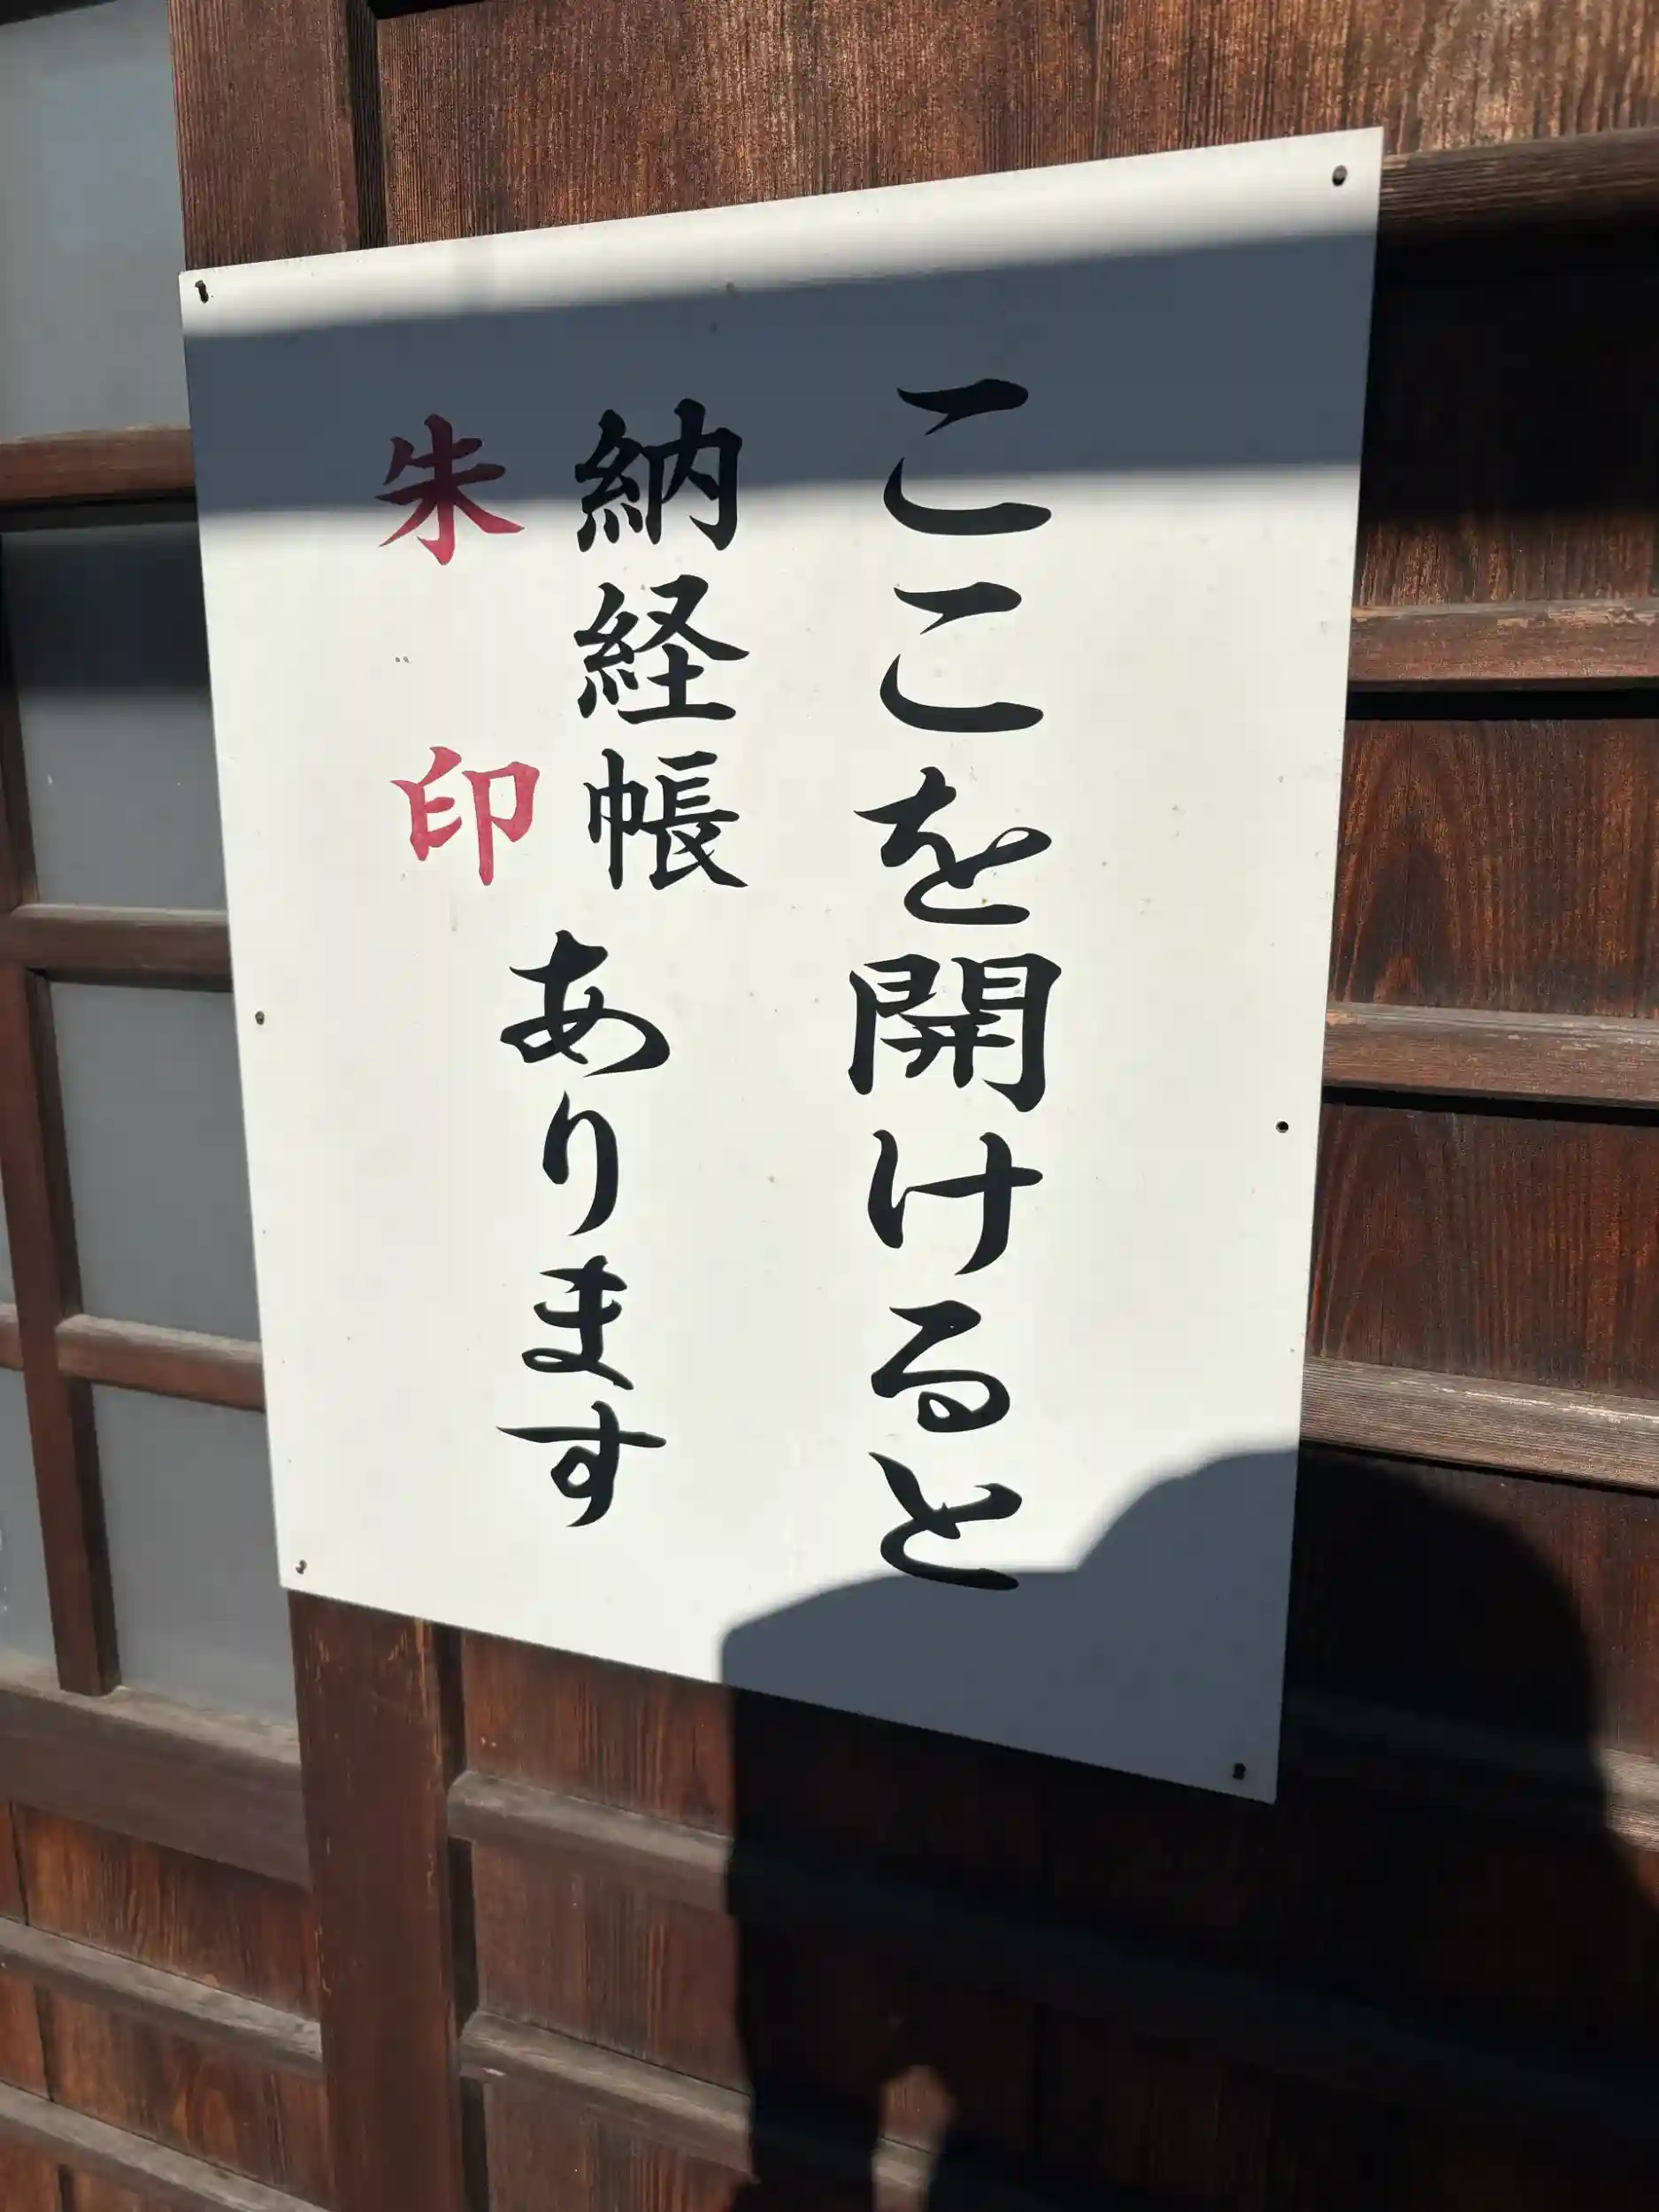 ここを開けると
納経帳
朱印
あります